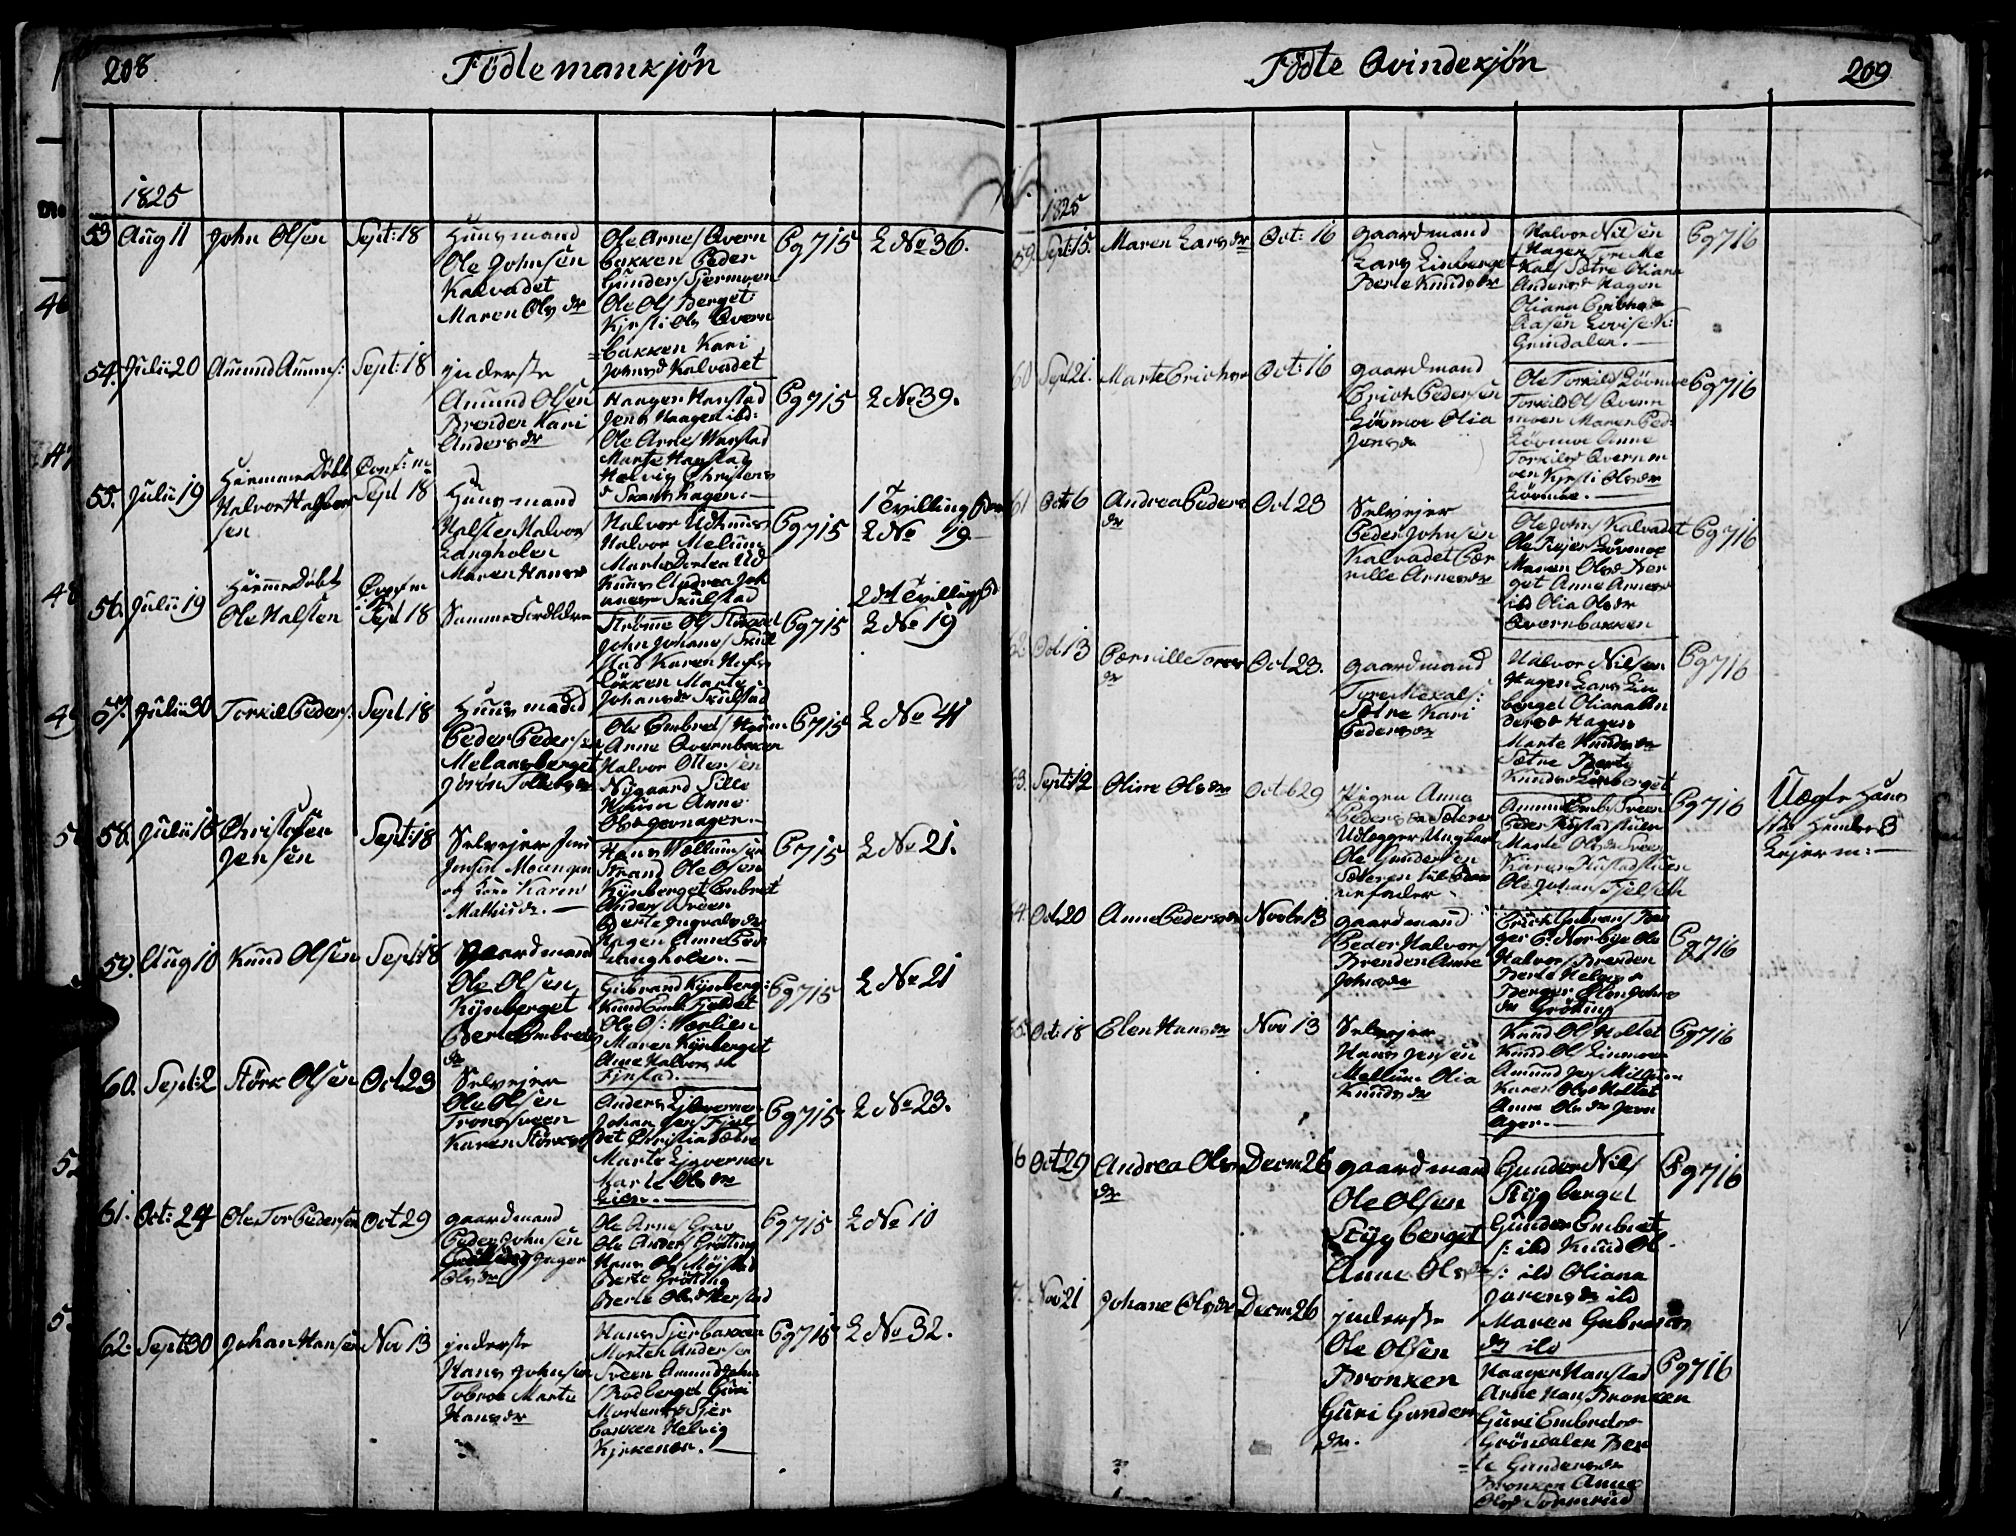 208
Födte mankjön
1825
53 Aug 11 John Olsen Sept: 18
Huusmand
Ole Johnsen
Kalvadet
Maren Ols dr
Ole Arnes Qvern
bakken Peder
Gunders Sjermoen
Ole Ols Berget
Kjersti Ols Qvern
bakken Kari
Johnsd Kalvadet
Pg 715 L No 36.
54. Julii 20 Amund Amunds: Sept: 18
jnderste
Amund Olsen
Brenden Kari
Anders dr
Haagen Hanstad
Jens Haagen ibd:
Ole Arnes Hanstad
Marte Hanstad
Helvig Christens
d Skavhagen.
Pg 715 L No 39.
55. Julii 19 Hiemmedöbt
Halvor Halstensen
Conf: m
Sept 18
Huusmand
Halsten Halvors
Langholen
Maren Hansd
Halvor Udhuus
Halvor Melum
Marte Dorten Ud
huus Andrea Joh
anes Skulstad
Pg 715
1 Tvilling
L No 19
56. Julii 19 Hiemmedöbt
Ole Halsten
Conf m
Sept 18
Samme Forældre
Strömme Ols
John Johanes Skul
stad Karen
lökken Marte
Johansdr Skulstad
Pg 715
2den Tvilling
L No 19
57. Julii 30 Torkil Peders: Sept 18
Huusmand
Peder Pedersen
Melaasberget
Joron Tollefs dr
Ole Embret
Anne Qvernbaken
Halvor Ottersen
Nygaard Sille
Anne
Ols
Pg 715 L No 41
58. Julii 16 Christofen
Jensen
Sept: 18
Selvejer Jens
Jensen Moeungen
og Kone Karen
Mathisdr.
Hans
Strand Ole Olsen
Kynberget Embret
Anders Öveen
Berte Ingvalsdr
Hagen Anne Ped
Langholen.
Pg 715 L No 21.
59. Aug 10 Knud Olsen Sept: 18
Gaardmand
Ole Olsen
Kynberget
Berte Embrets
dr
Gubrand Kynberg:
Knud Emb Fjeldet
Ole Ols: Værlien
Maren Kynberget
Anne Halvors dr
Finstad.
Pg 715 L No 21
60. Sept: 2 Störk Olsen Oct 23
Selvejer
Ole Olsen
Tronsveen
Karen Störksd
Anders Ljövernen
Johan Jens Fjel
det Christia Sætre
Marte Ljövernen
Marte Ols dr
Lien.
Pg 715 L No 23.
61. Oct: 24 Ole Tor Pedersen Oct 29
gaardmand
Peder Johnsen
Gröting Inger
Ols dr
Ole Arnes Grav
Ole Anders Gröting
Hans Ols Möystad
Berte Gröting
Berte Olsd Herstad
Pg 715 L No 10
62. Sept 30 Johan Hansen Nov 13
jnderste
Hans Johnsen
Tobroe Marte
Hansdr
Hans Sjerbakken
Morten Andersen
Sveen Amund John
s Rodberget Guri
Mortensd Sjer
bakken Helvig
Kjerkenes.
Pg 715 L No 32.
209
Födte Qvindekjön
1825
59 Sept 15. Maren Larsdr Oct: 16
gaardmand
Lars Linberget
Berte Knudsdr
Halvor Nilsen
Hagen Tore Me
kals Sætre Oliana
Andersd Hagen
Oliana Erichsdr
Aasen Lovise K:
Grindalen.
Pg 716
60 Sept 21. Marte Erichsdr Oct: 16
gaardmand
Erich Pedersen
Lövmoe Olia
Jensdr
Ole Torkilds Lövmoe
Torkild Ols Qvern
moen Maren Ped.
Lövmoe Anne
Torkildsd Qvernm
oen Kjersti Olsdr
Lövmoe.
Pg 716
61 Oct 6 Andrea Peders
dr
Oct 23
Selvejer
Peder Johnsen
Kalvadet Per
nille Arnesdr
Ole Johns Kalvadet
Ole Rejer Lövmoe
Maren Olsd Ber
get Anne Arnesd
ibd Olia Olsdr
Qvernbakken
Pg 716
62 Oct 13 Pernille Tores
dr
Oct 23.
gaardmand
Tore Mekals:
Sætre Kari
Pedersdr
Halvor Nilsen
Hagen Lars Lin
berget Oliana An
dersd Hagen
Marte Knudsdr
Sætre Berte
Knudsd Linberget
Pg 716
63. Sept 12 Oline Olsdr Octob 29
Pigen Anna
Pedersdr Sæteren
Udlegger Ungkarl
Ole Gundersen
Sæteren til Barne
nefader
Amund Emb Sveen
Peder Rustadstuen
Marte Olsdr Sveen
Karen Rustadstuen
Ole Johans Fjelseth
Pg 716
Uægte hans
1ste hendes 3
Lejerm:
64. Oct 20 Anne Pedersdr Novbr 13
gaardmand
Peder Halvors
Brenden Anne
Johnsdr
Erich Embrets Ber
ger P: Norbye Ole
Halvors Brenden
Berte Helges
Berger Elen Johns
dr Gröting
Pg 716
65. Oct: 18 Elen Hansdr Nov 13
Selvejer
Hans Jensen
Mellum Olia
Knudsdr
Knud Ols Holtet
Knud Ols Linmoe
Amund Jens Mellum
Karen Olsd Holtet
Anne Ols dr Jern
ager.
Pg 716
6 Oct 29 Andrea Ols
dr
Decm 26
gaardmand
Ole Olsen
Stygberget
Anne Olsdr
Gunder Nils
Stygberget
Gunder Embret
s: ibd Knud Ol
s: ibd Oliana
Jörensdr ibd
Maren Gubrands
dr ibd
Pg 716
7. Nov 21 Johane Olsdr Decm 26
jnderste
Ole Olsen
Bronken
Guri Gunders
dr.
Haagen Hanstad
Arne Hans Bronken
Guri Embretsd
Gröndalen Ber
te Gundersdr
Bronken Anne
Olsd Sormrud
Pg 716